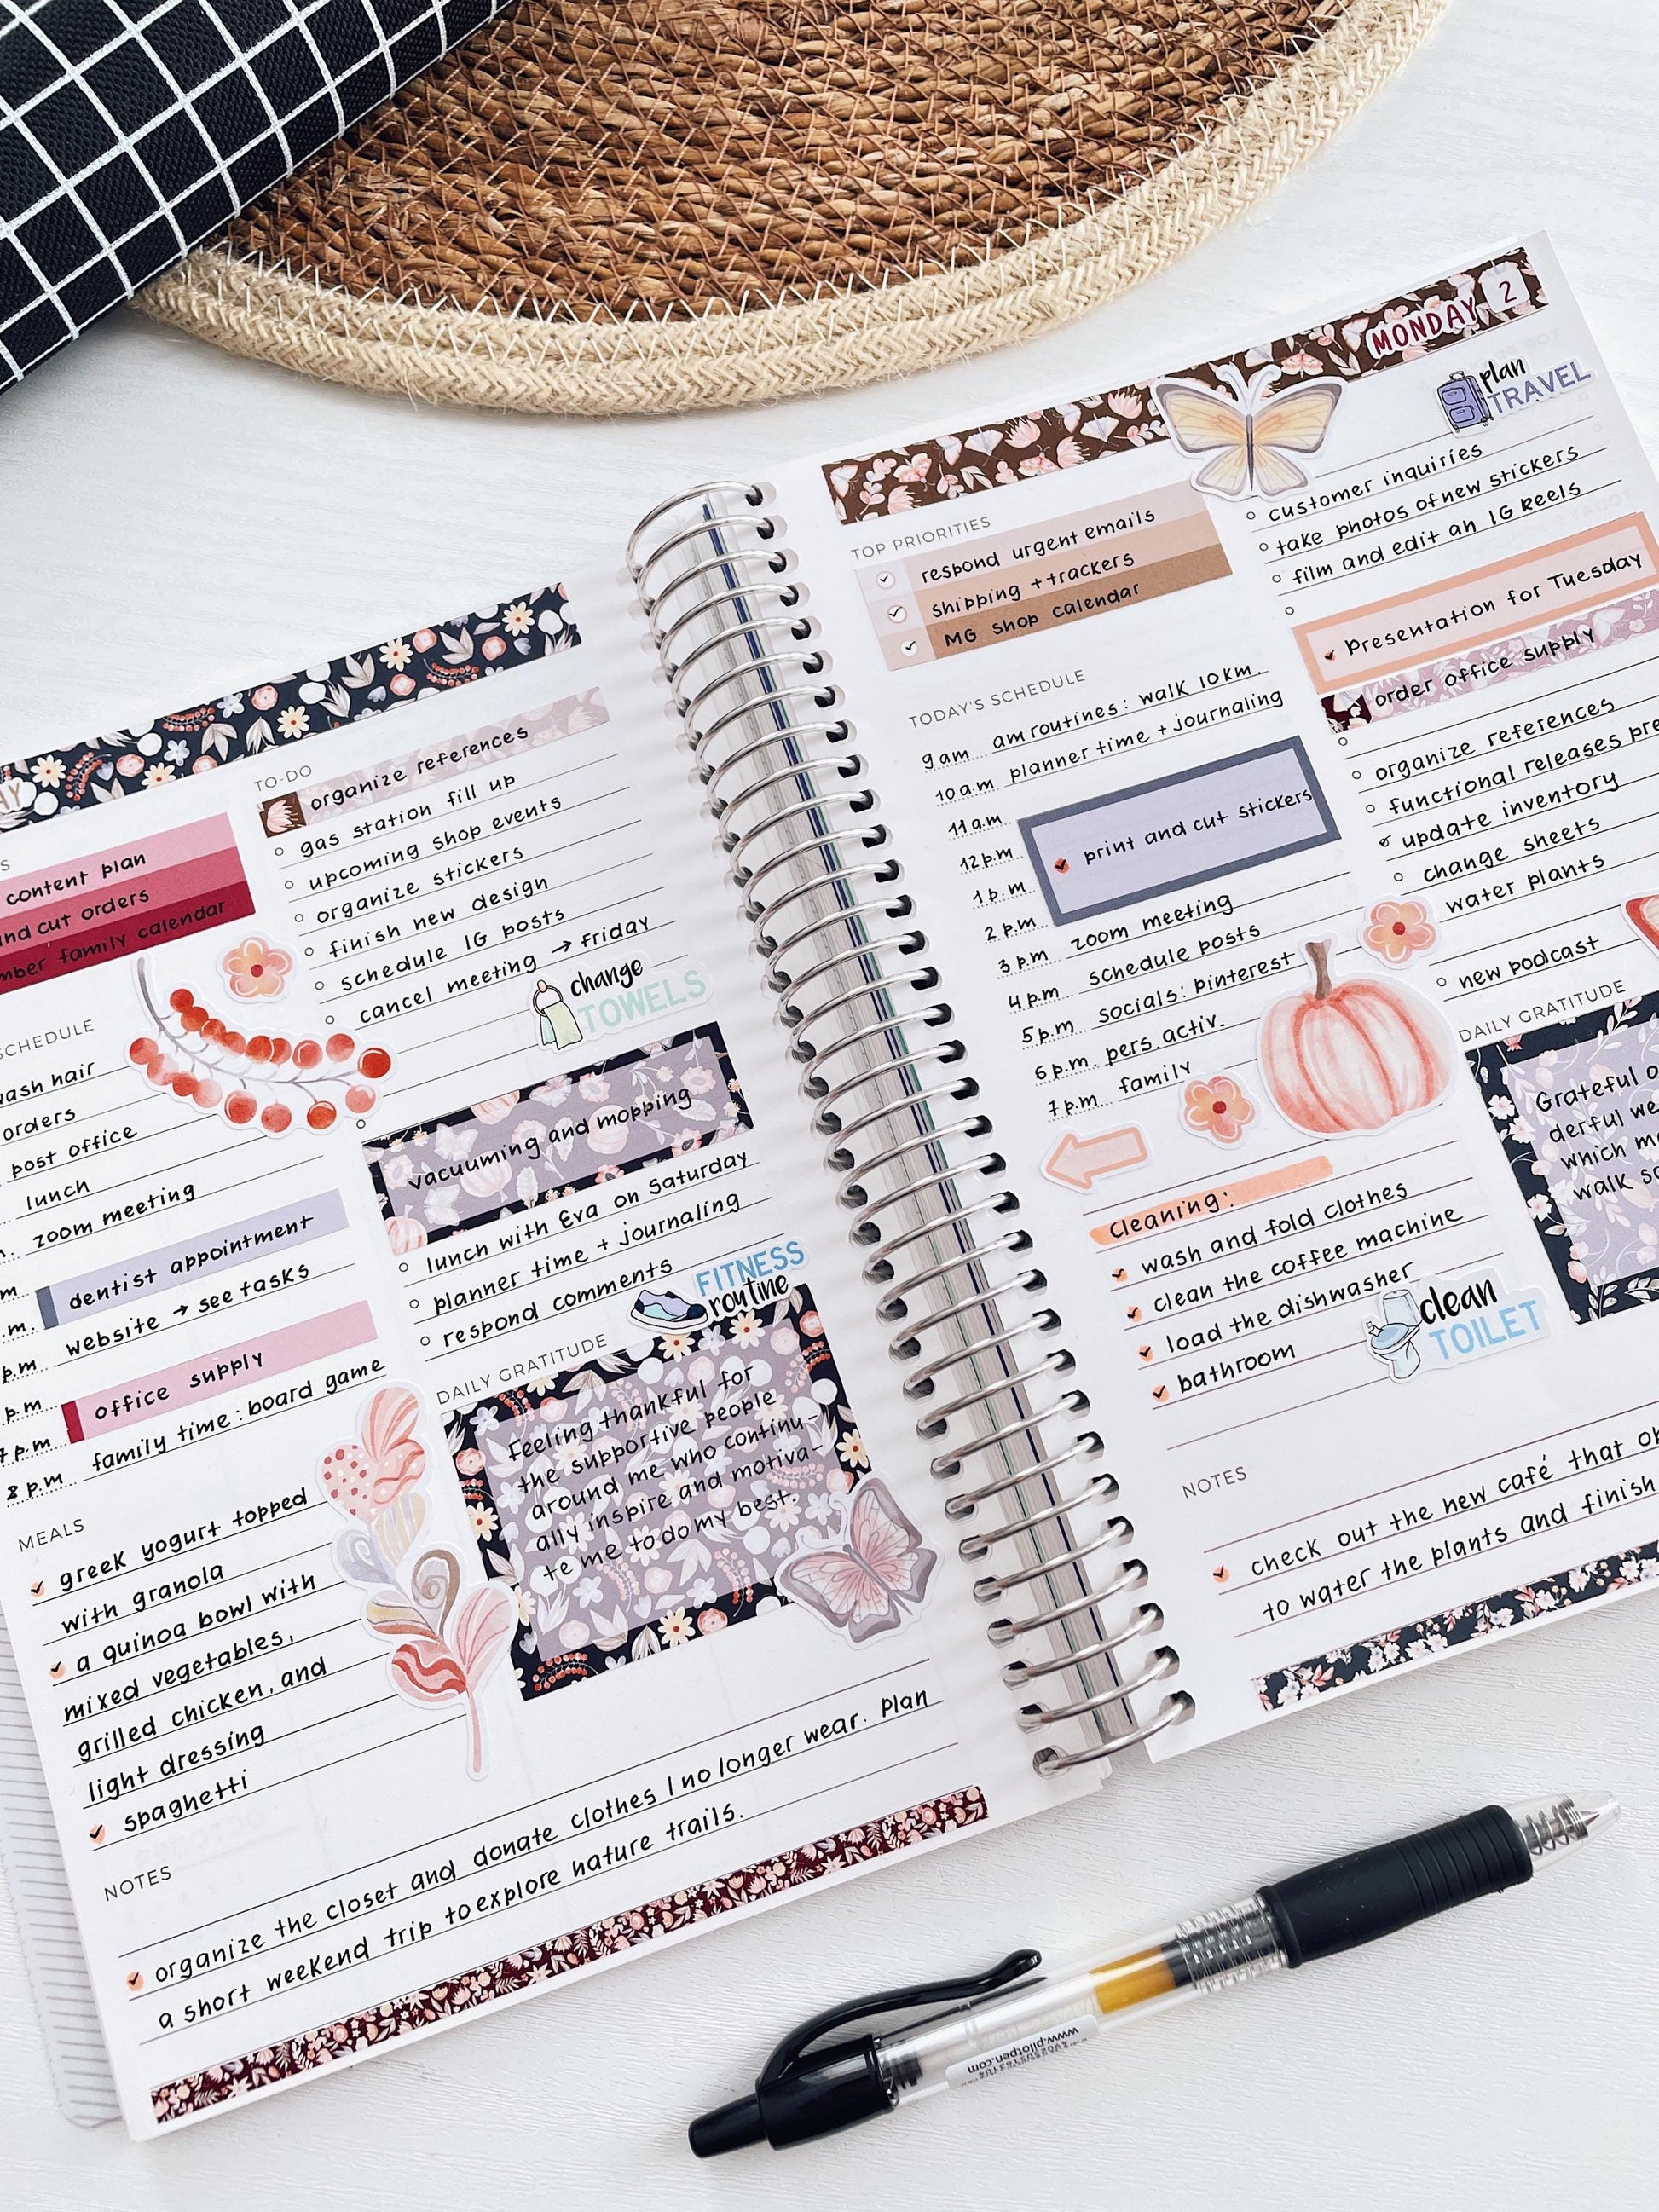 content plan
and cut orders
family calendar
SCHEDULE
wash hair
orders
post office
lunch
zoom meeting
dentist appointment
website → see tasks
p.m.
office supply
p.m.
7 p.m.
family time: board game
8 p.m.
MEALS
greek yogurt topped
with granola
a quinoa bowl with
mixed vegetables,
grilled chicken, and
light dressing
spaghetti
TO-DO
organize references
gas station fill up
upcoming shop events
organize stickers
finish new design
schedule IG posts
cancel meeting → Friday
change
TOWELS
vacuuming and mopping
lunch with Eva on Saturday
planner time + journaling
respond comments
FITNESS
routine
DAILY GRATITUDE
Feeling thankful for
the supportive people
around me who continu-
ally inspire and motiva-
te me to do my best.
NOTES
organize the closet and donate clothes I no longer wear. Plan
a short weekend trip to explore nature trails.
MONDAY 2
TOP PRIORITIES
respond urgent emails
shipping + trackers
MG shop calendar
TODAY'S SCHEDULE
9 am am routines: walk 10 km.
10 a.m planner time + journaling
11 a.m
12 p.m print and cut stickers
1 p.m
2 p.m zoom meeting
3 p.m schedule posts
4 p.m socials: pinterest
5 p.m pers. activ.
6 p.m. family
7 p.m
Cleaning:
wash and fold clothes
clean the coffee machine
load the dishwasher
bathroom
clean
TOILET
plan
TRAVEL
customer inquiries
take photos of new stickers
film and edit an IG Reels
Presentation for Tuesday
order office supply
organize references
functional releases
update inventory
change sheets
water plants
new podcast
DAILY GRATITUDE
Grateful
derful
which
walk
NOTES
check out the new café that
to water the plants and finish
www.pilotpen.com